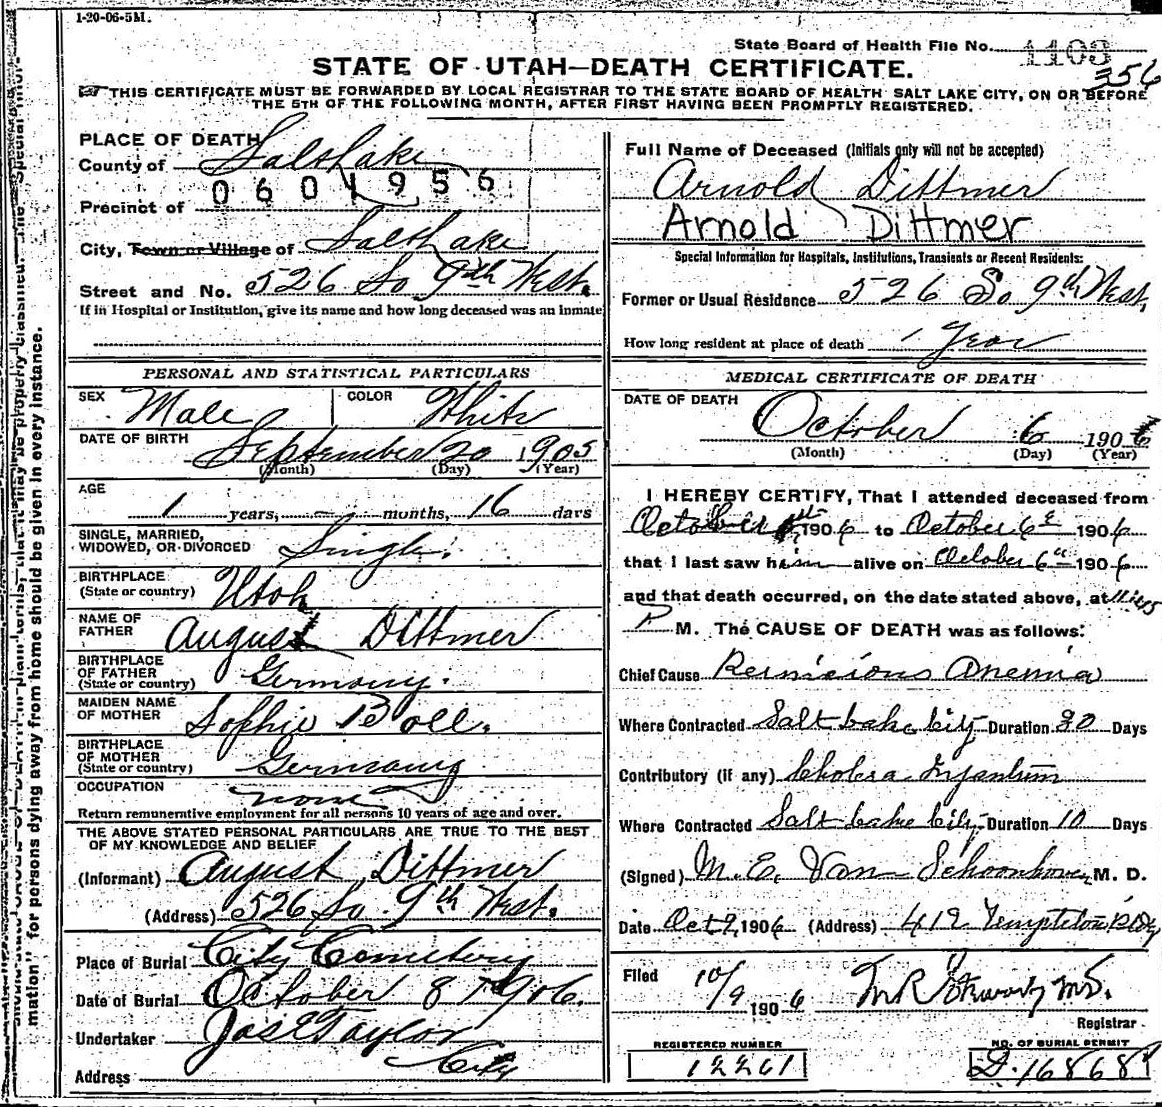 1-20-06-5M.
State Board of Health File No. 1103
356
STATE OF UTAH—DEATH CERTIFICATE.
THIS CERTIFICATE MUST BE FORWARDED BY LOCAL REGISTRAR TO THE STATE BOARD OF HEALTH SALT LAKE CITY, ON OR BEFORE
THE 5TH OF THE FOLLOWING MONTH, AFTER FIRST HAVING BEEN PROMPTLY REGISTERED.
PLACE OF DEATH
County of Salt Lake
0601956
Precinct of
City, Town or Village of Salt Lake
Street and No. 526 So 9th West.
If in Hospital or Institution, give its name and how long deceased was an inmate
Full Name of Deceased (Initials only will not be accepted)
Arnold Dittmer
Arnold Dittmer
Special Information for Hospitals, Institutions, Transients or Recent Residents:
Former or Usual Residence 526 So 9th West,
How long resident at place of death 1 Year
PERSONAL AND STATISTICAL PARTICULARS
SEX Male COLOR White
DATE OF BIRTH September 20 1905
(Month) (Day) (Year)
AGE
1 years, — months, 16 days
SINGLE, MARRIED,
WIDOWED, OR DIVORCED Single.
BIRTHPLACE
(State or country) Utah
NAME OF
FATHER August Dittmer
BIRTHPLACE
OF FATHER
(State or country) Germany.
MAIDEN NAME
OF MOTHER Sophie Boll.
BIRTHPLACE
OF MOTHER
(State or country) Germany
OCCUPATION none
Return remunerative employment for all persons 10 years of age and over.
THE ABOVE STATED PERSONAL PARTICULARS ARE TRUE TO THE BEST
OF MY KNOWLEDGE AND BELIEF
(Informant) August Dittmer
(Address) 526 So. 9th West.
Place of Burial City Cemetery
Date of Burial October 8th 1906.
Undertaker Jos E Taylor
Address City
MEDICAL CERTIFICATE OF DEATH
DATE OF DEATH
October 6 1906
(Month) (Day) (Year)
I HEREBY CERTIFY, That I attended deceased from
October 1906 to October 6 1906
that I last saw him alive on October 6th 1906
and that death occurred, on the date stated above, at
P M. The CAUSE OF DEATH was as follows:
Chief Cause Pernicious Anemia
Where Contracted Salt Lake City Duration 30 Days
Contributory (if any) Cholera Infantum
Where Contracted Salt Lake City Duration 10 Days
(Signed) M. E. Van Schoonhoven M. D.
Date Oct 9, 1906 (Address) 412 Templeton Bldg
Filed 10/9 1906
M.D.
Registrar
REGISTERED NUMBER
12261
NO. OF BURIAL PERMIT
D.16868
mation" for persons dying away from home should be given in every instance.